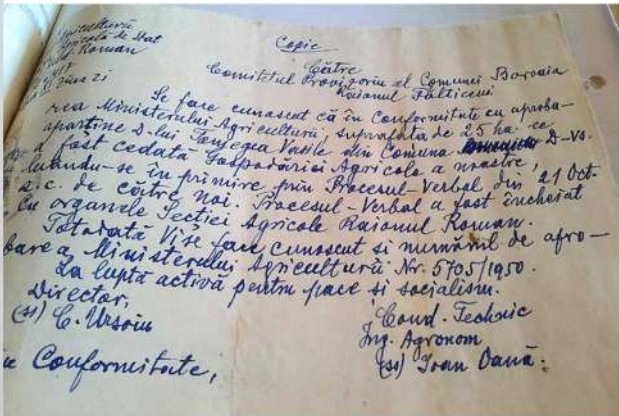 Agriculturii
Agricolă de Stat
Roman
Copie
Către
Comitetul Provizoriu al Comunei Boroaia
Raionul Fălticeni
Se face cunoscut că în conformitate cu aproba-
rea Ministerului Agriculturii, suprafața de 25 ha. ce
aparține D-lui Vasile din Comuna D-vs.
a fost cedată Gospodăriei Agricole a noastre,
luându-se în primire prin Procesul-Verbal din 21 Oct.
a.c. de către noi. Procesul-Verbal a fost încheiat
cu organele Secției Agricole Raionul Roman.
Totodată Vi se face cunoscut si numărul de apro-
bare a Ministerului Agriculturii Nr. 5705/1950.
La luptă activă pentru pace și socialism.
Director,
(ss) C. Ursoiu
Cond. Technic
Ing. Agronom
(ss) Ioan Oană.
Conformitate,